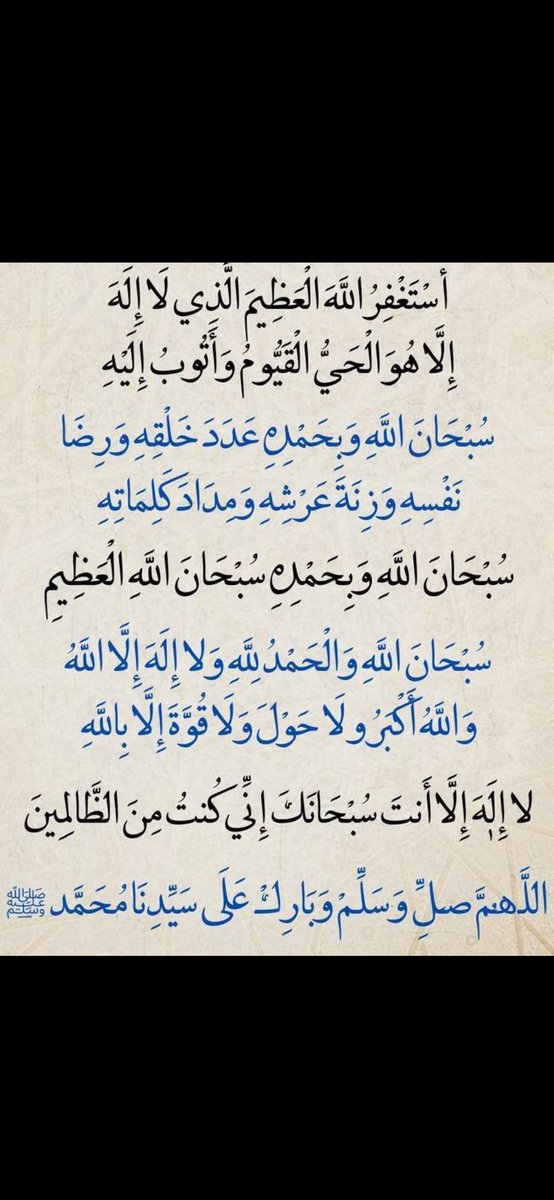 أَسْتَغْفِرُ اللَّهَ الْعَظِيمَ الَّذِي لَا إِلَهَ
إِلَّا هُوَ الْحَيُّ الْقَيُّومُ وَأَتُوبُ إِلَيْهِ
سُبْحَانَ اللَّهِ وَبِحَمْدِهِ عَدَدَ خَلْقِهِ وَرِضَا
نَفْسِهِ وَزِنَةَ عَرْشِهِ وَمِدَادَ كَلِمَاتِهِ
سُبْحَانَ اللَّهِ وَبِحَمْدِهِ سُبْحَانَ اللَّهِ الْعَظِيمِ
سُبْحَانَ اللَّهِ وَالْحَمْدُ لِلَّهِ وَلا إِلَهَ إِلَّا اللَّهُ
وَاللَّهُ أَكْبَرُ ولَا حَوْلَ وَلَا قُوَّةَ إِلَّا بِاللَّهِ
لا إِلَهَ إِلَّا أَنتَ سُبْحَانَكَ إِنِّي كُنتُ مِنَ الظَّالِمِينَ
اللَّهمَّ صلِّ وَسَلِّمْ وَبَارِكْ عَلَى سَيِّدِنَا مُحَمَّد ﷺ